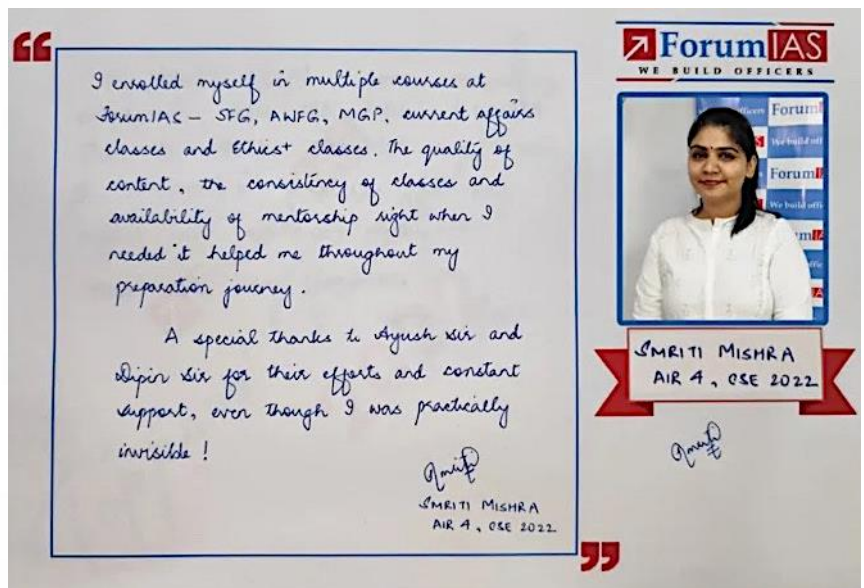 I enrolled myself in multiple courses at
ForumIAS - SFG, AWFG, MGP, current affairs
classes and Ethics+ classes. The quality of
content, the consistency of classes and
availability of mentorship right when I
needed it helped me throughout my
preparation journey.
A special thanks to Ayush sir and
Dipin sir for their efforts and constant
support, even though I was practically
invisible!
Smriti
SMRITI MISHRA
AIR 4, CSE 2022
ForumIAS
WE BUILD OFFICERS
officers Forum
We build offi
ForumI
We build offi
SMRITI MISHRA
AIR 4, CSE 2022
Smriti